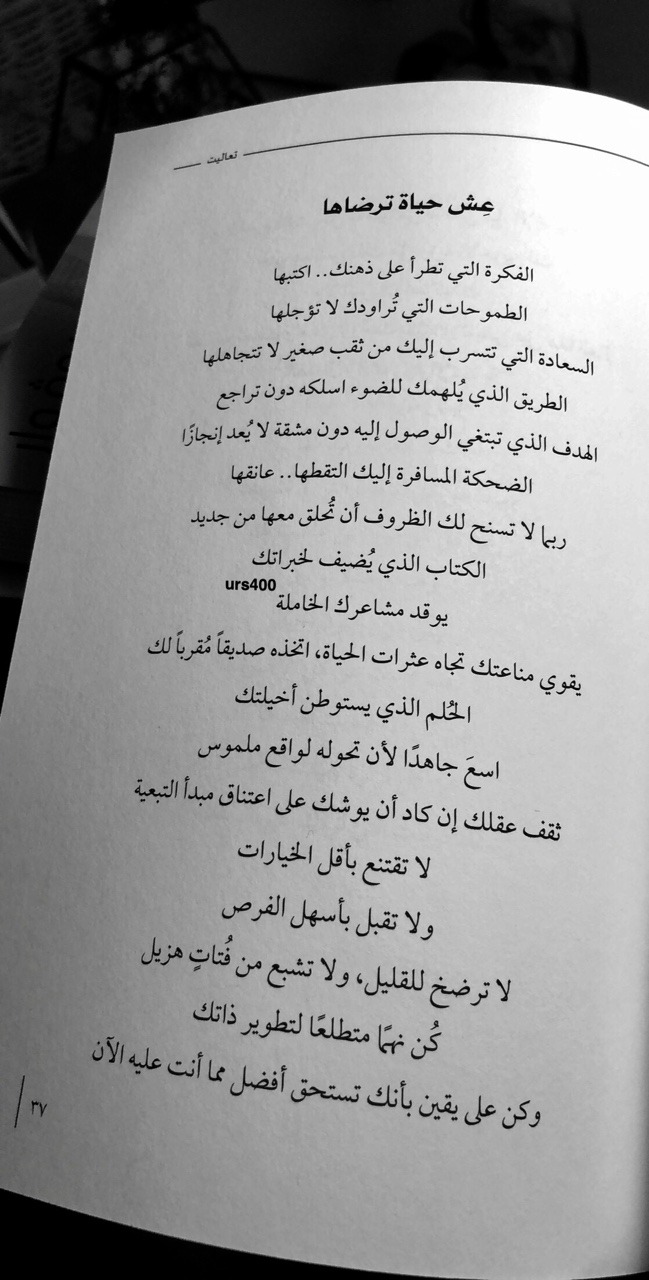 تعاليت
عِش حياة ترضاها
الفكرة التي تطرأ على ذهنك.. اكتبها
الطموحات التي تُراودك لا تؤجلها
السعادة التي تتسرب إليك من ثقب صغير لا تتجاهلها
الطريق الذي يُلهمك للضوء اسلكه دون تراجع
الهدف الذي تبتغي الوصول إليه دون مشقة لا يُعد إنجازًا
الضحكة المسافرة إليك التقطها.. عانقها
ربما لا تسنح لك الظروف أن تُحلق معها من جديد
الكتاب الذي يُضيف لخبراتك
urs400
يوقد مشاعرك الخاملة
يقوي مناعتك تجاه عثرات الحياة، اتخذه صديقاً مُقرباً لك
الحُلم الذي يستوطن أخيلتك
اسعَ جاهدًا لأن تحوله لواقع ملموس
ثقف عقلك إن كاد أن يوشك على اعتناق مبدأ التبعية
لا تقتنع بأقل الخيارات
ولا تقبل بأسهل الفرص
لا ترضخ للقليل، ولا تشبع من فُتاتٍ هزيل
كُن نهمًا متطلعًا لتطوير ذاتك
وكن على يقين بأنك تستحق أفضل مما أنت عليه الآن
٣٧